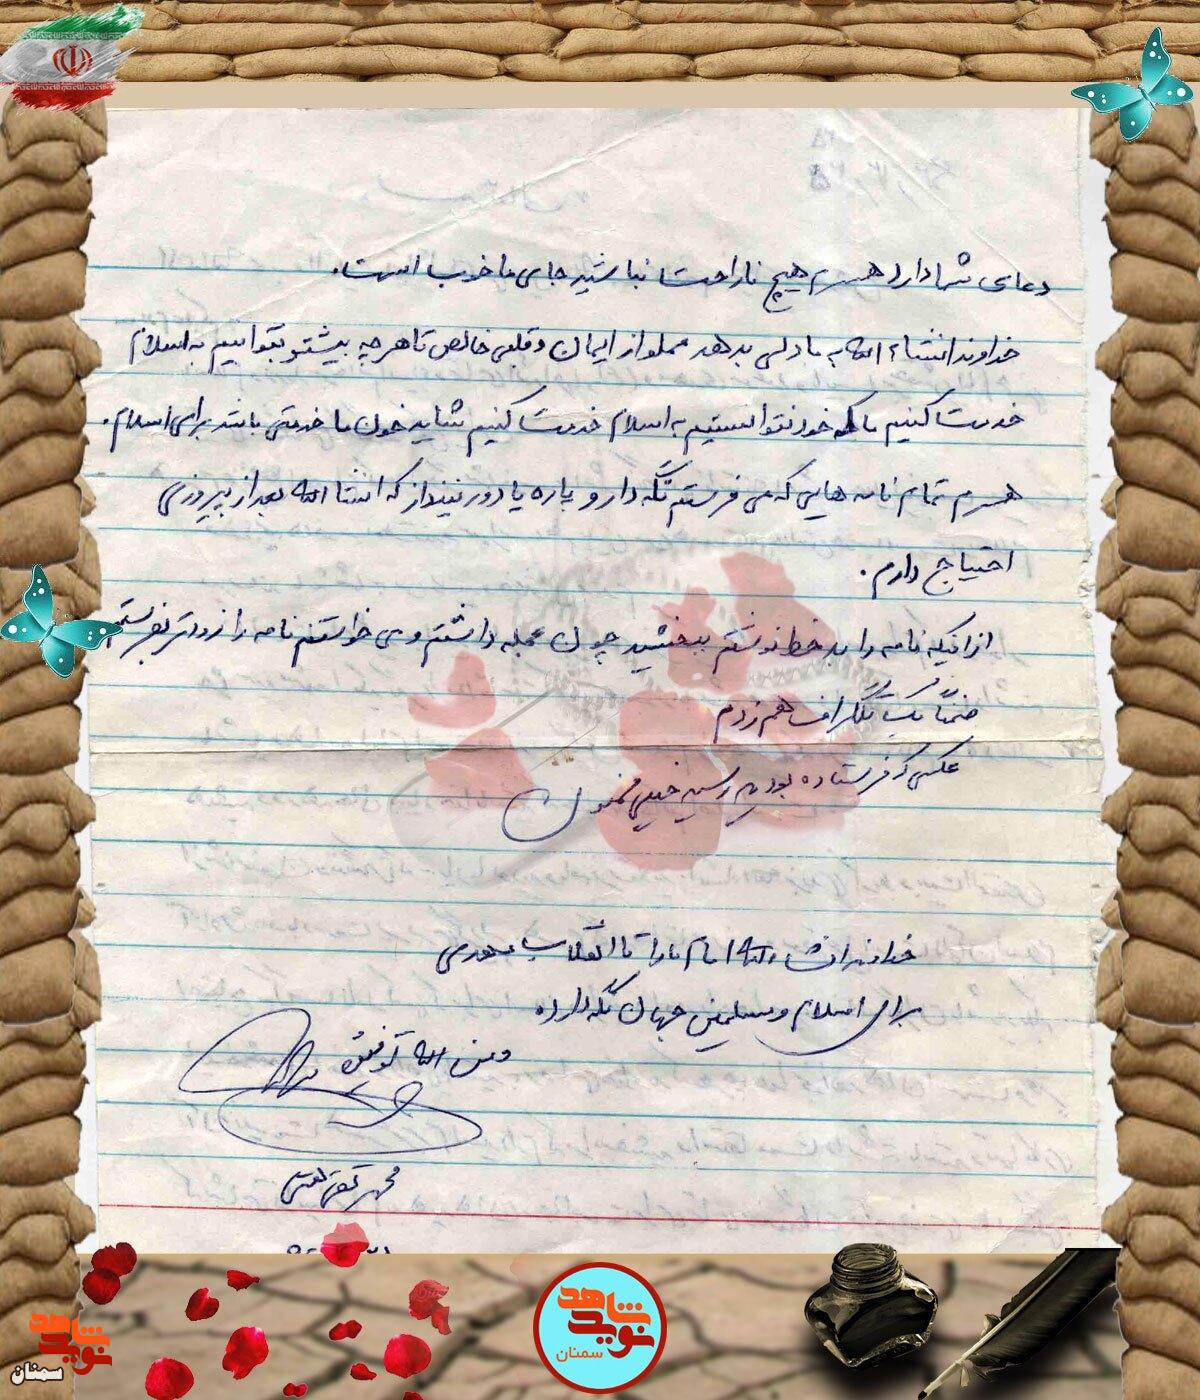 دعای شما دارد همسرم هیچ ناراحت نباشید جای ما خوب است.
خداوند انشاء الله به ما دلی بدهد مملو از ایمان و قلبی خالص تا هر چه بیشتر بتوانیم به اسلام
خدمت کنیم ما که خود نتوانستیم به اسلام خدمت کنیم شاید خون ما خدمتی باشد برای اسلام.
همسرم تمام نامه هایی که می فرستم نگه دار و پاره یا دور نینداز که انشا الله بعد از پیروزی
احتیاج دارم.
از اینکه نامه را بد خط نوشتم ببخشید چون عجله داشتم و می خواستم نامه را زودتر بفرستم
ضمناً یک تلگراف هم زدم
عکسی که فرستاده بودید رسید خیلی ممنون
خداوند انشاءالله امام ما را تا انقلاب مهدی
برای اسلام و مسلمین جهان نگه دارد
و من الله توفیق
محمد تقی
نوید شاهد
سمنان
نوید شاهد
سمنان